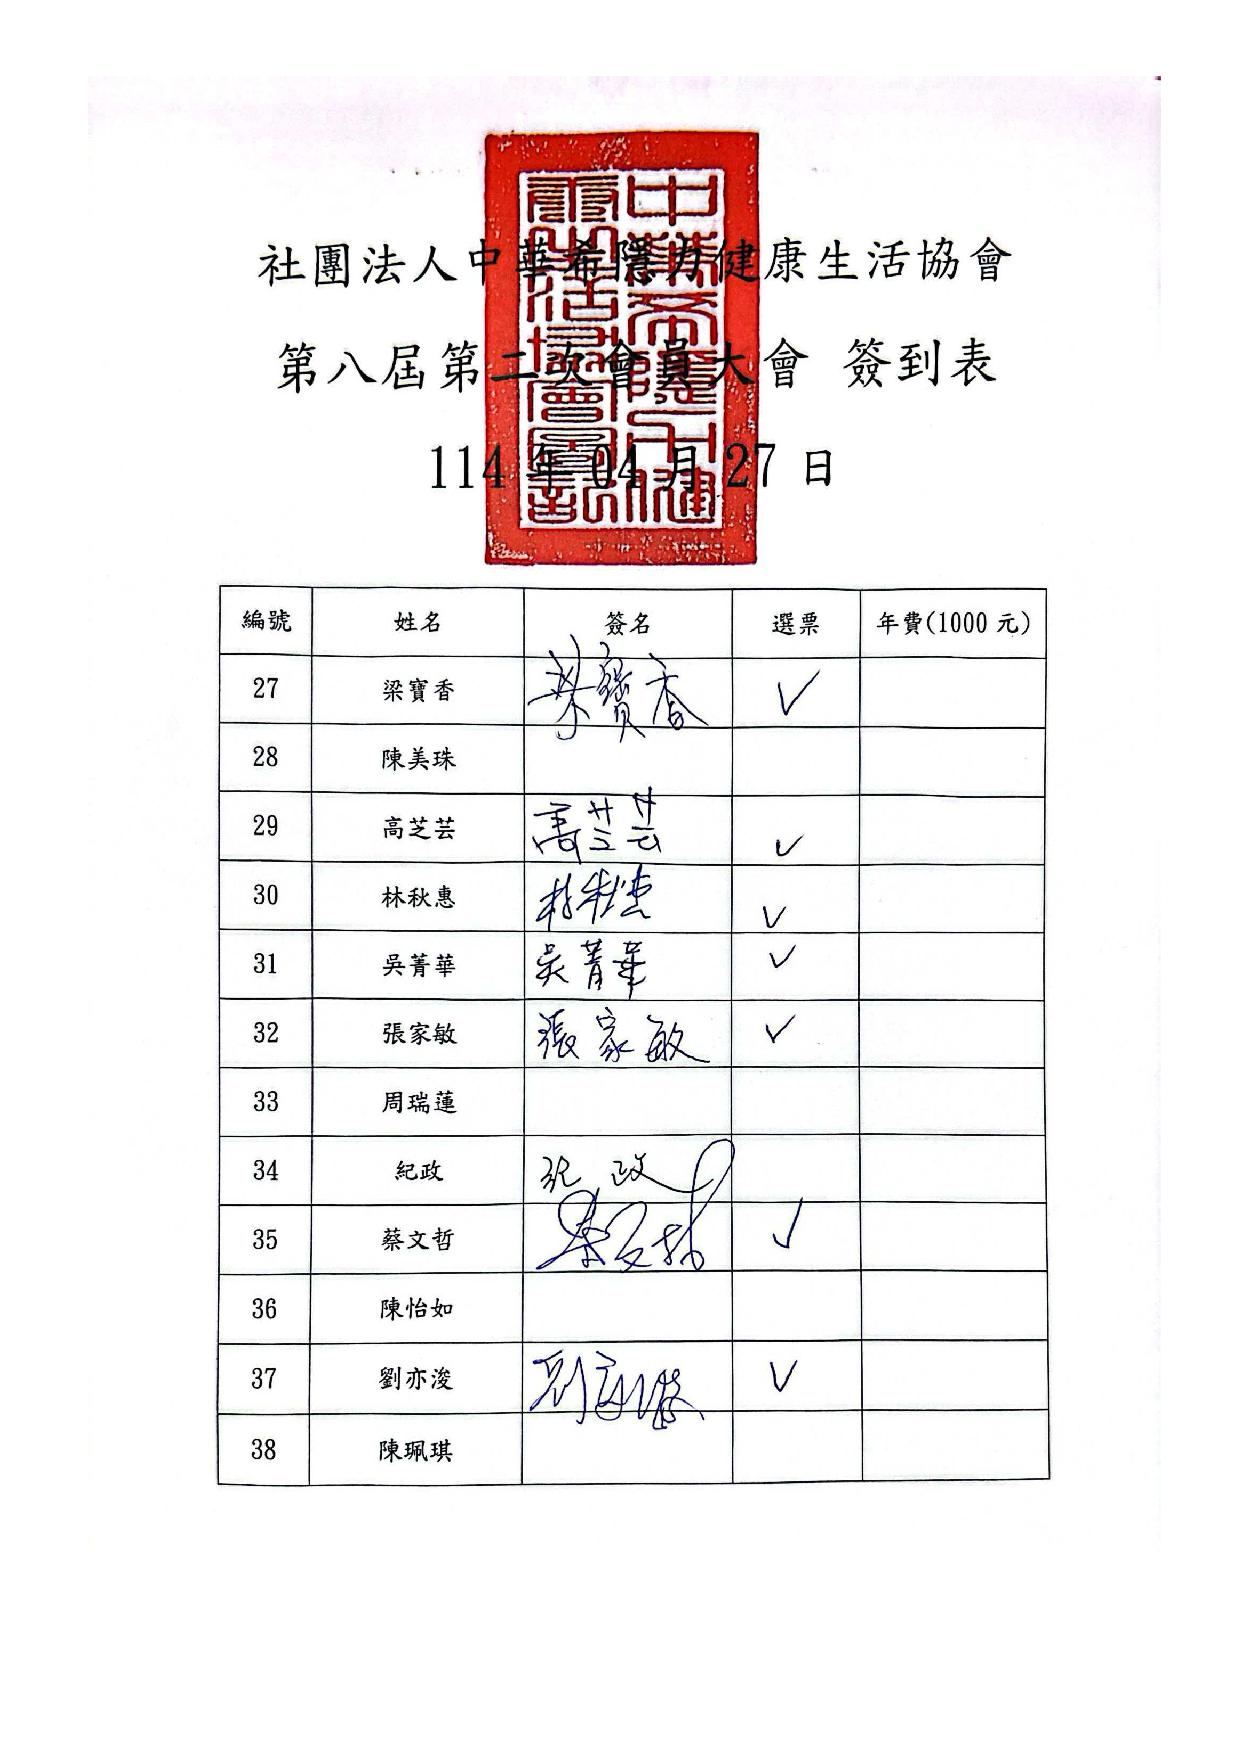 社團法人中華希隱力健康生活協會
第八屆第二次會員大會 簽到表
114 年 04 月 27 日
編號 姓名 簽名 選票 年費(1000 元)
27 梁寶香 梁寶香 ✓
28 陳美珠
29 高芝芸 高芝芸 ✓
30 林秋惠 林秋惠 ✓
31 吳菁華 吳菁華 ✓
32 張家敏 張家敏 ✓
33 周瑞蓮
34 紀政 紀政
35 蔡文哲 蔡文哲 ✓
36 陳怡如
37 劉亦浚 劉亦浚 ✓
38 陳珮琪